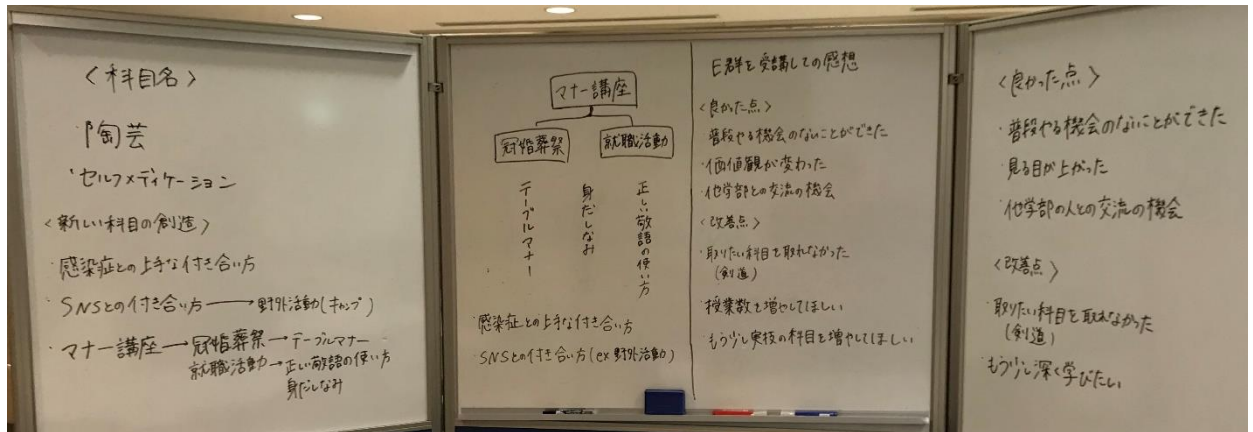 <科目名>
・陶芸
・セルフメディケーション
<新しい科目の創造>
・感染症との上手な付き合い方
・SNSとの付き合い方→野外活動(キャンプ)
・マナー講座→冠婚葬祭→テーブルマナー
就職活動→正しい敬語の使い方
身だしなみ
マナー講座
冠婚葬祭 就職活動
テーブルマナー
身だしなみ
正しい敬語の使い方
・感染症との上手な付き合い方
・SNSとの付き合い方(ex 野外活動)
E群を受講しての感想
<良かった点>
・普段やる機会のないことができた
・価値観が変わった
・他学部との交流の機会
<改善点>
・取りたい科目を取れなかった
(剣道)
・授業数を増やしてほしい
・もう少し実技の科目を増やしてほしい
<良かった点>
・普段やる機会のないことができた
・見る目が上がった
・他学部の人との交流の機会
<改善点>
・取りたい科目を取れなかった
(剣道)
・もう少し深く学びたい